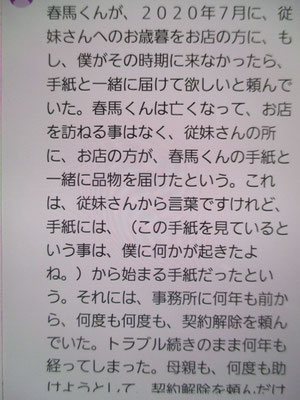 春馬くんが、２０２０年7月に、従
妹さんへのお歳暮をお店の方に、も
し、僕がその時期に来なかったら、
手紙と一緒に届けて欲しいと頼んで
いた。春馬くんは亡くなって、お店
を訪ねる事はなく、従妹さんの所
に、お店の方が、春馬くんの手紙と
一緒に品物を届けたという。これ
は、従妹さんから言葉ですけれど、
手紙には、（この手紙を見ていると
いう事は、僕に何かが起きたよ
ね。）から始まる手紙だったとい
う。それには、事務所に何年も前か
ら、何度も何度も、契約解除を頼ん
でいた。トラブル続きのまま何年も
経ってしまった。母親も、何度も助
けようとして、契約解除を頼んだけ